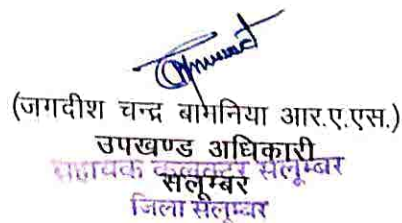 (जगदीश चन्द्र बामनिया आर.ए.एस.)
उपखण्ड अधिकारी
सहायक कलक्टर सलूम्बर
सलूम्बर
जिला सलूम्बर